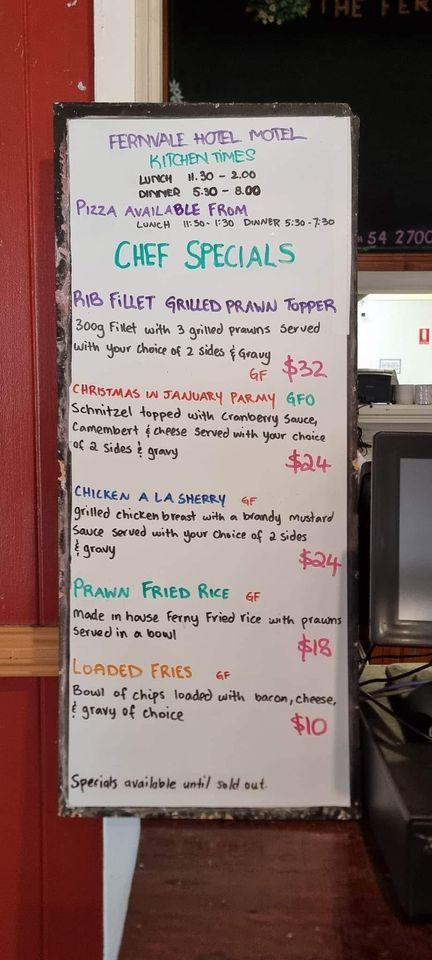 THE FER
FERNVALE HOTEL MOTEL
KITCHEN TIMES
LUNCH 11.30 - 2.00
DINNER 5:30 - 8.00
PIZZA AVAILABLE FROM
LUNCH 11:30 - 1:30 DINNER 5:30 - 7:30
54 2700
CHEF SPECIALS
RIB FILLET GRILLED PRAWN TOPPER
300g Fillet with 3 grilled prawns served
with your choice of 2 sides & Gravy
GF $32
CHRISTMAS IN JANUARY PARMY GFO
Schnitzel topped with cranberry sauce,
Camembert & cheese served with your choice
of 2 sides & gravy
$24
CHICKEN A LA SHERRY GF
grilled chicken breast with a brandy mustard
sauce served with your choice of 2 sides
& gravy
$24
PRAWN FRIED RICE GF
Made in house Ferny Fried rice with prawns
served in a bowl
$18
LOADED FRIES GF
Bowl of chips loaded with bacon, cheese,
& gravy of choice
$10
Specials available until sold out.